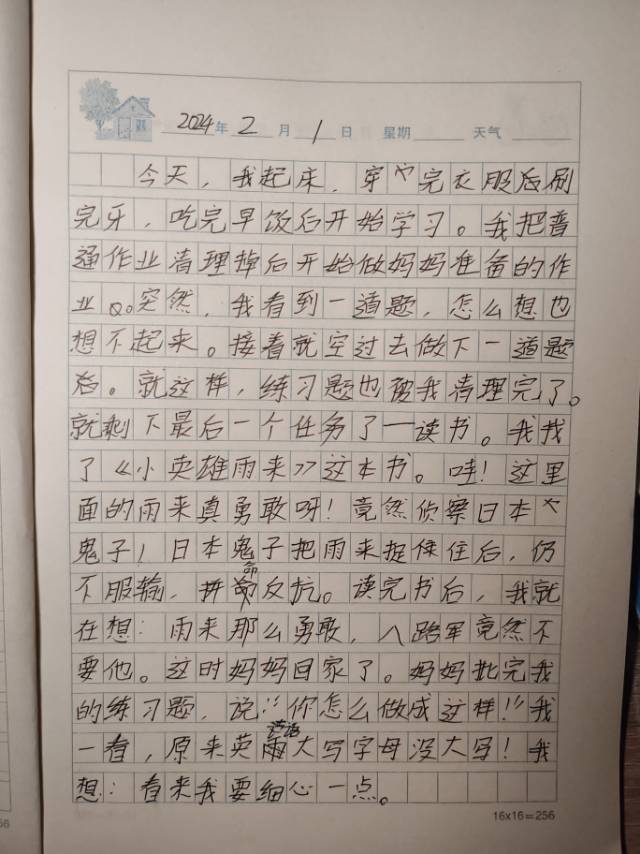 2024年2月1日 星期 天气
今天，我起来，穿完衣服后刷
完牙，吃完早饭后开始学习。我把普
通作业清理掉后开始做妈妈准备的作
业。突然，我看到一道题，怎么想也
想不起来。接着就空过去做下一道题
后。就这样，练习题也被我清理完了。
就剩下最后一个任务了——读书。我找
了《小英雄雨来》这本书。哇！这里
面的雨来真勇敢呀！竟然侦察日本
鬼子！日本鬼子把雨来捉住后，仍
不服输，拼命反抗。读完书后，我就
在想：雨来那么勇敢，八路军竟然不
要他。这时妈妈回家了。妈妈批完我
的练习题，说：“你怎么做成这样！”我
一看，原来英语大写字母没大写！我
想：看来我要细心一点。
16x16=256